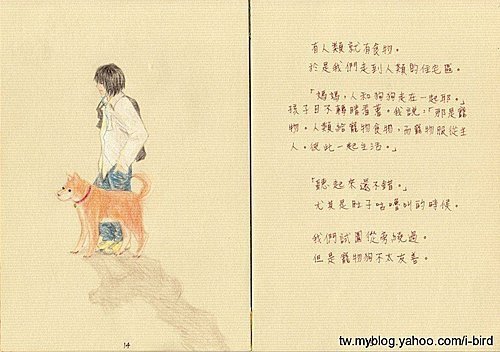 有人類就有食物。
於是我們走到人類的住宅區。
「媽媽，人和狗狗走在一起耶。」
孩子目不轉睛看著。我說：「那是寵
物。人類給寵物食物，而寵物服從主
人。彼此一起生活。」
「聽起來還不錯。」
尤其是肚子咕嚕叫的時候。
我們試圖從旁繞過。
但是寵物狗不太友善。
14
tw.myblog.yahoo.com/i-bird